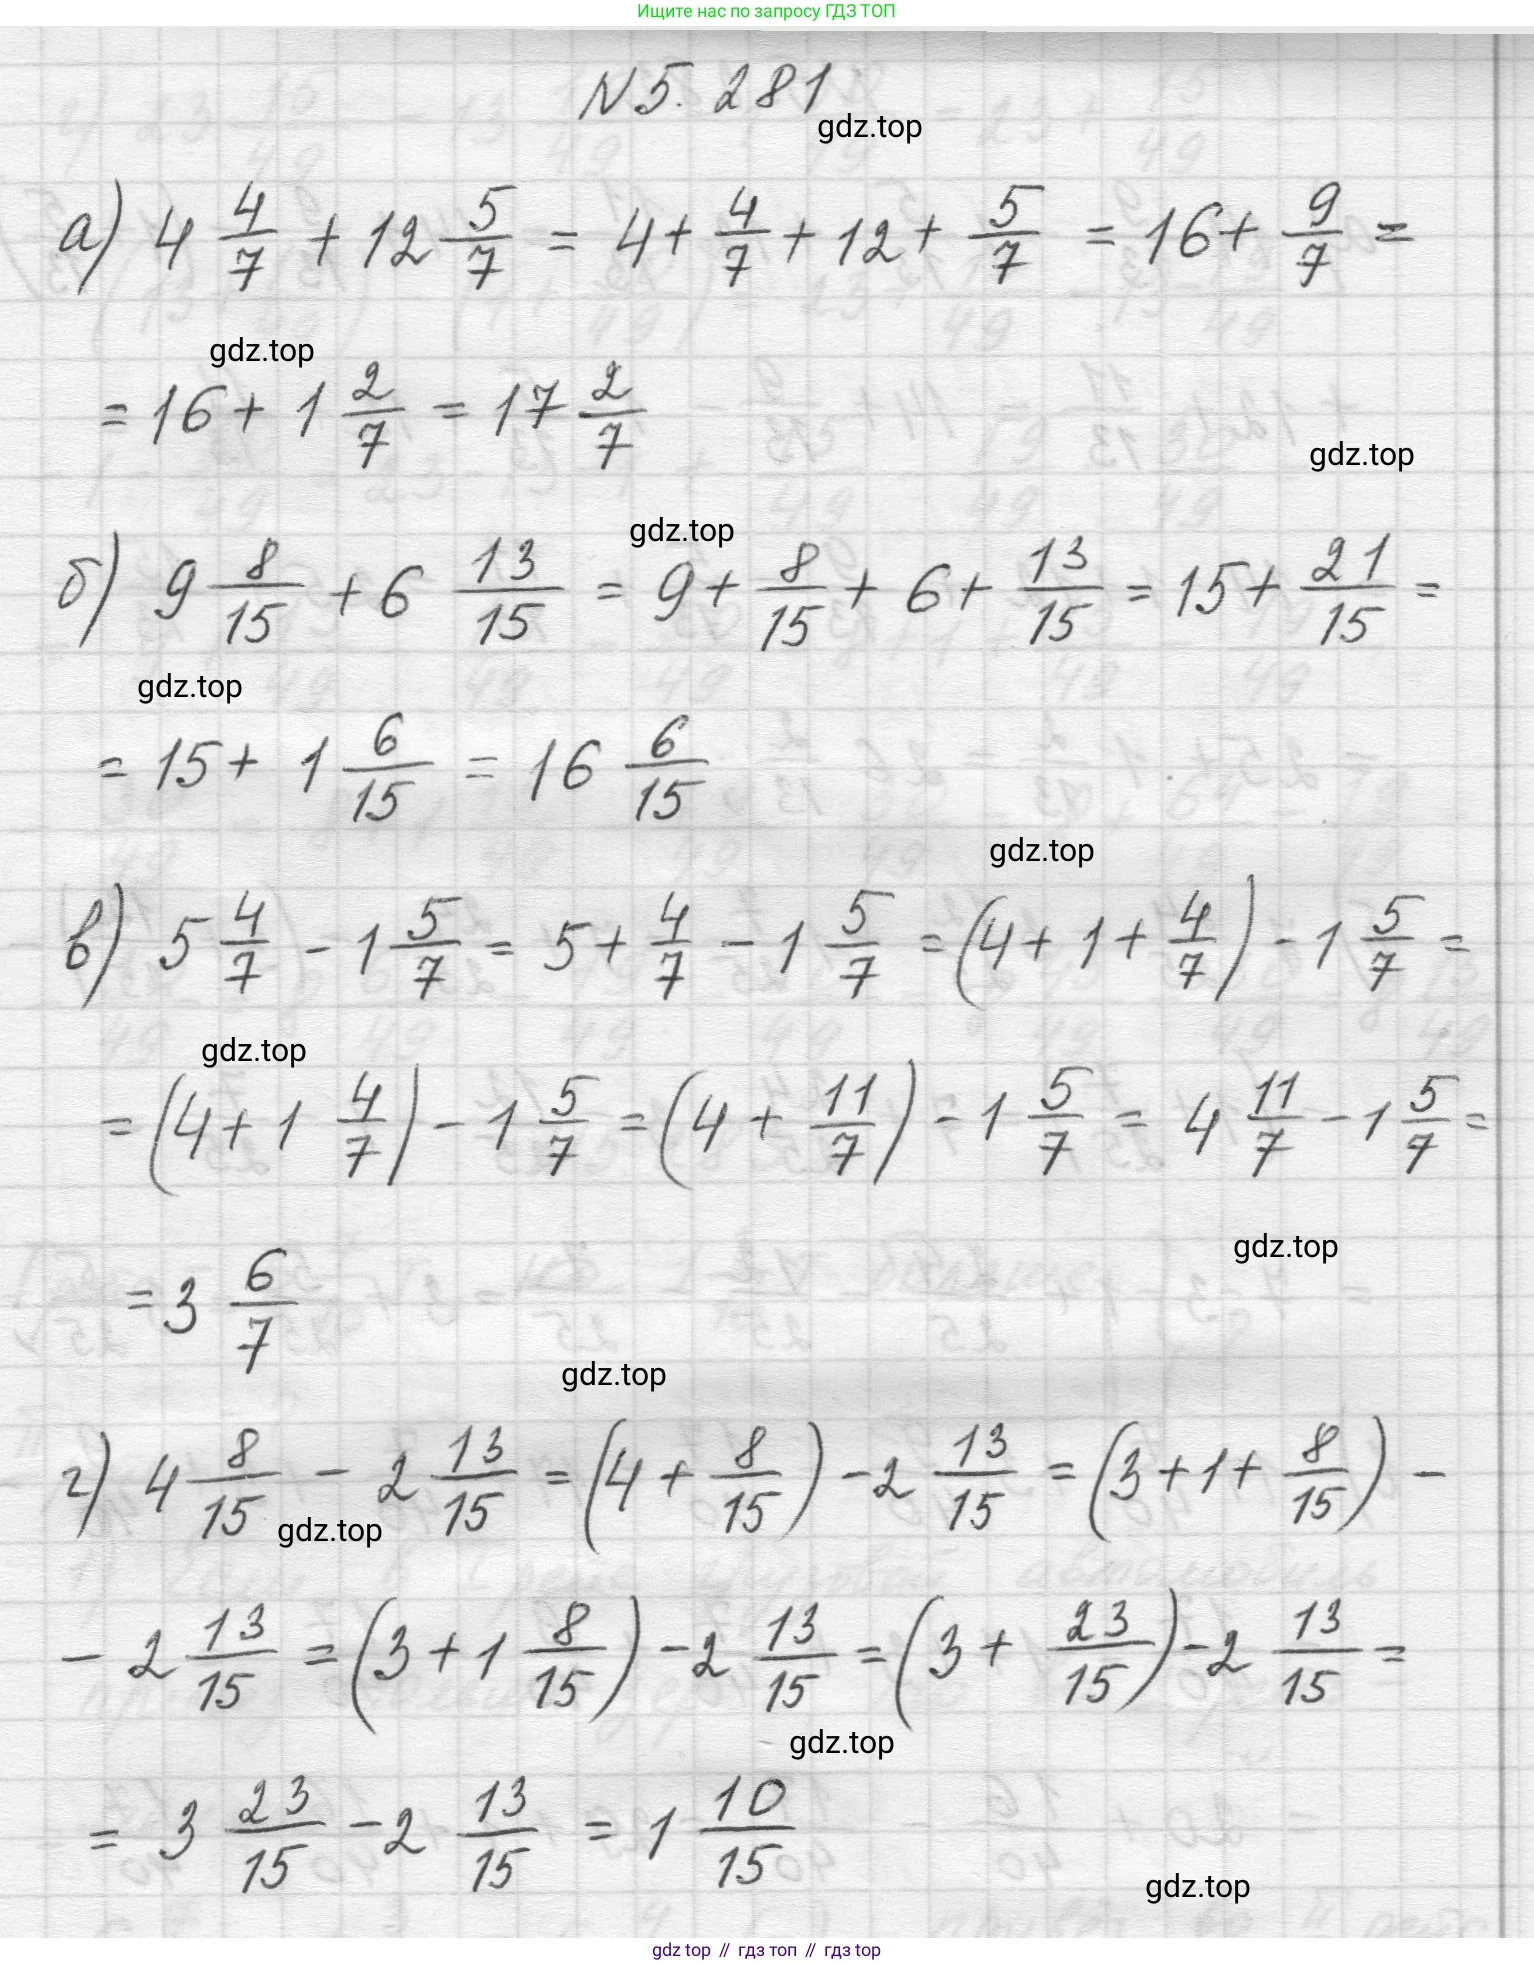 Ищите нас по запросу ГДЗ ТОП
N5.281
gdz.top
а) 4 4/7 + 12 5/7 = 4 + 4/7 + 12 + 5/7 = 16 + 9/7 =
gdz.top
= 16 + 1 2/7 = 17 2/7
gdz.top
gdz.top
б) 9 8/15 + 6 13/15 = 9 + 8/15 + 6 + 13/15 = 15 + 21/15 =
gdz.top
= 15 + 1 6/15 = 16 6/15
gdz.top
в) 5 4/7 - 1 5/7 = 5 + 4/7 - 1 5/7 = (4 + 1 + 4/7) - 1 5/7 =
gdz.top
= (4 + 1 4/7) - 1 5/7 = (4 + 11/7) - 1 5/7 = 4 11/7 - 1 5/7 =
gdz.top
= 3 6/7
gdz.top
г) 4 8/15 - 2 13/15 = (4 + 8/15) - 2 13/15 = (3 + 1 + 8/15) -
gdz.top
- 2 13/15 = (3 + 1 8/15) - 2 13/15 = (3 + 23/15) - 2 13/15 =
gdz.top
= 3 23/15 - 2 13/15 = 1 10/15
gdz.top
gdz top // гдз топ // гдз top